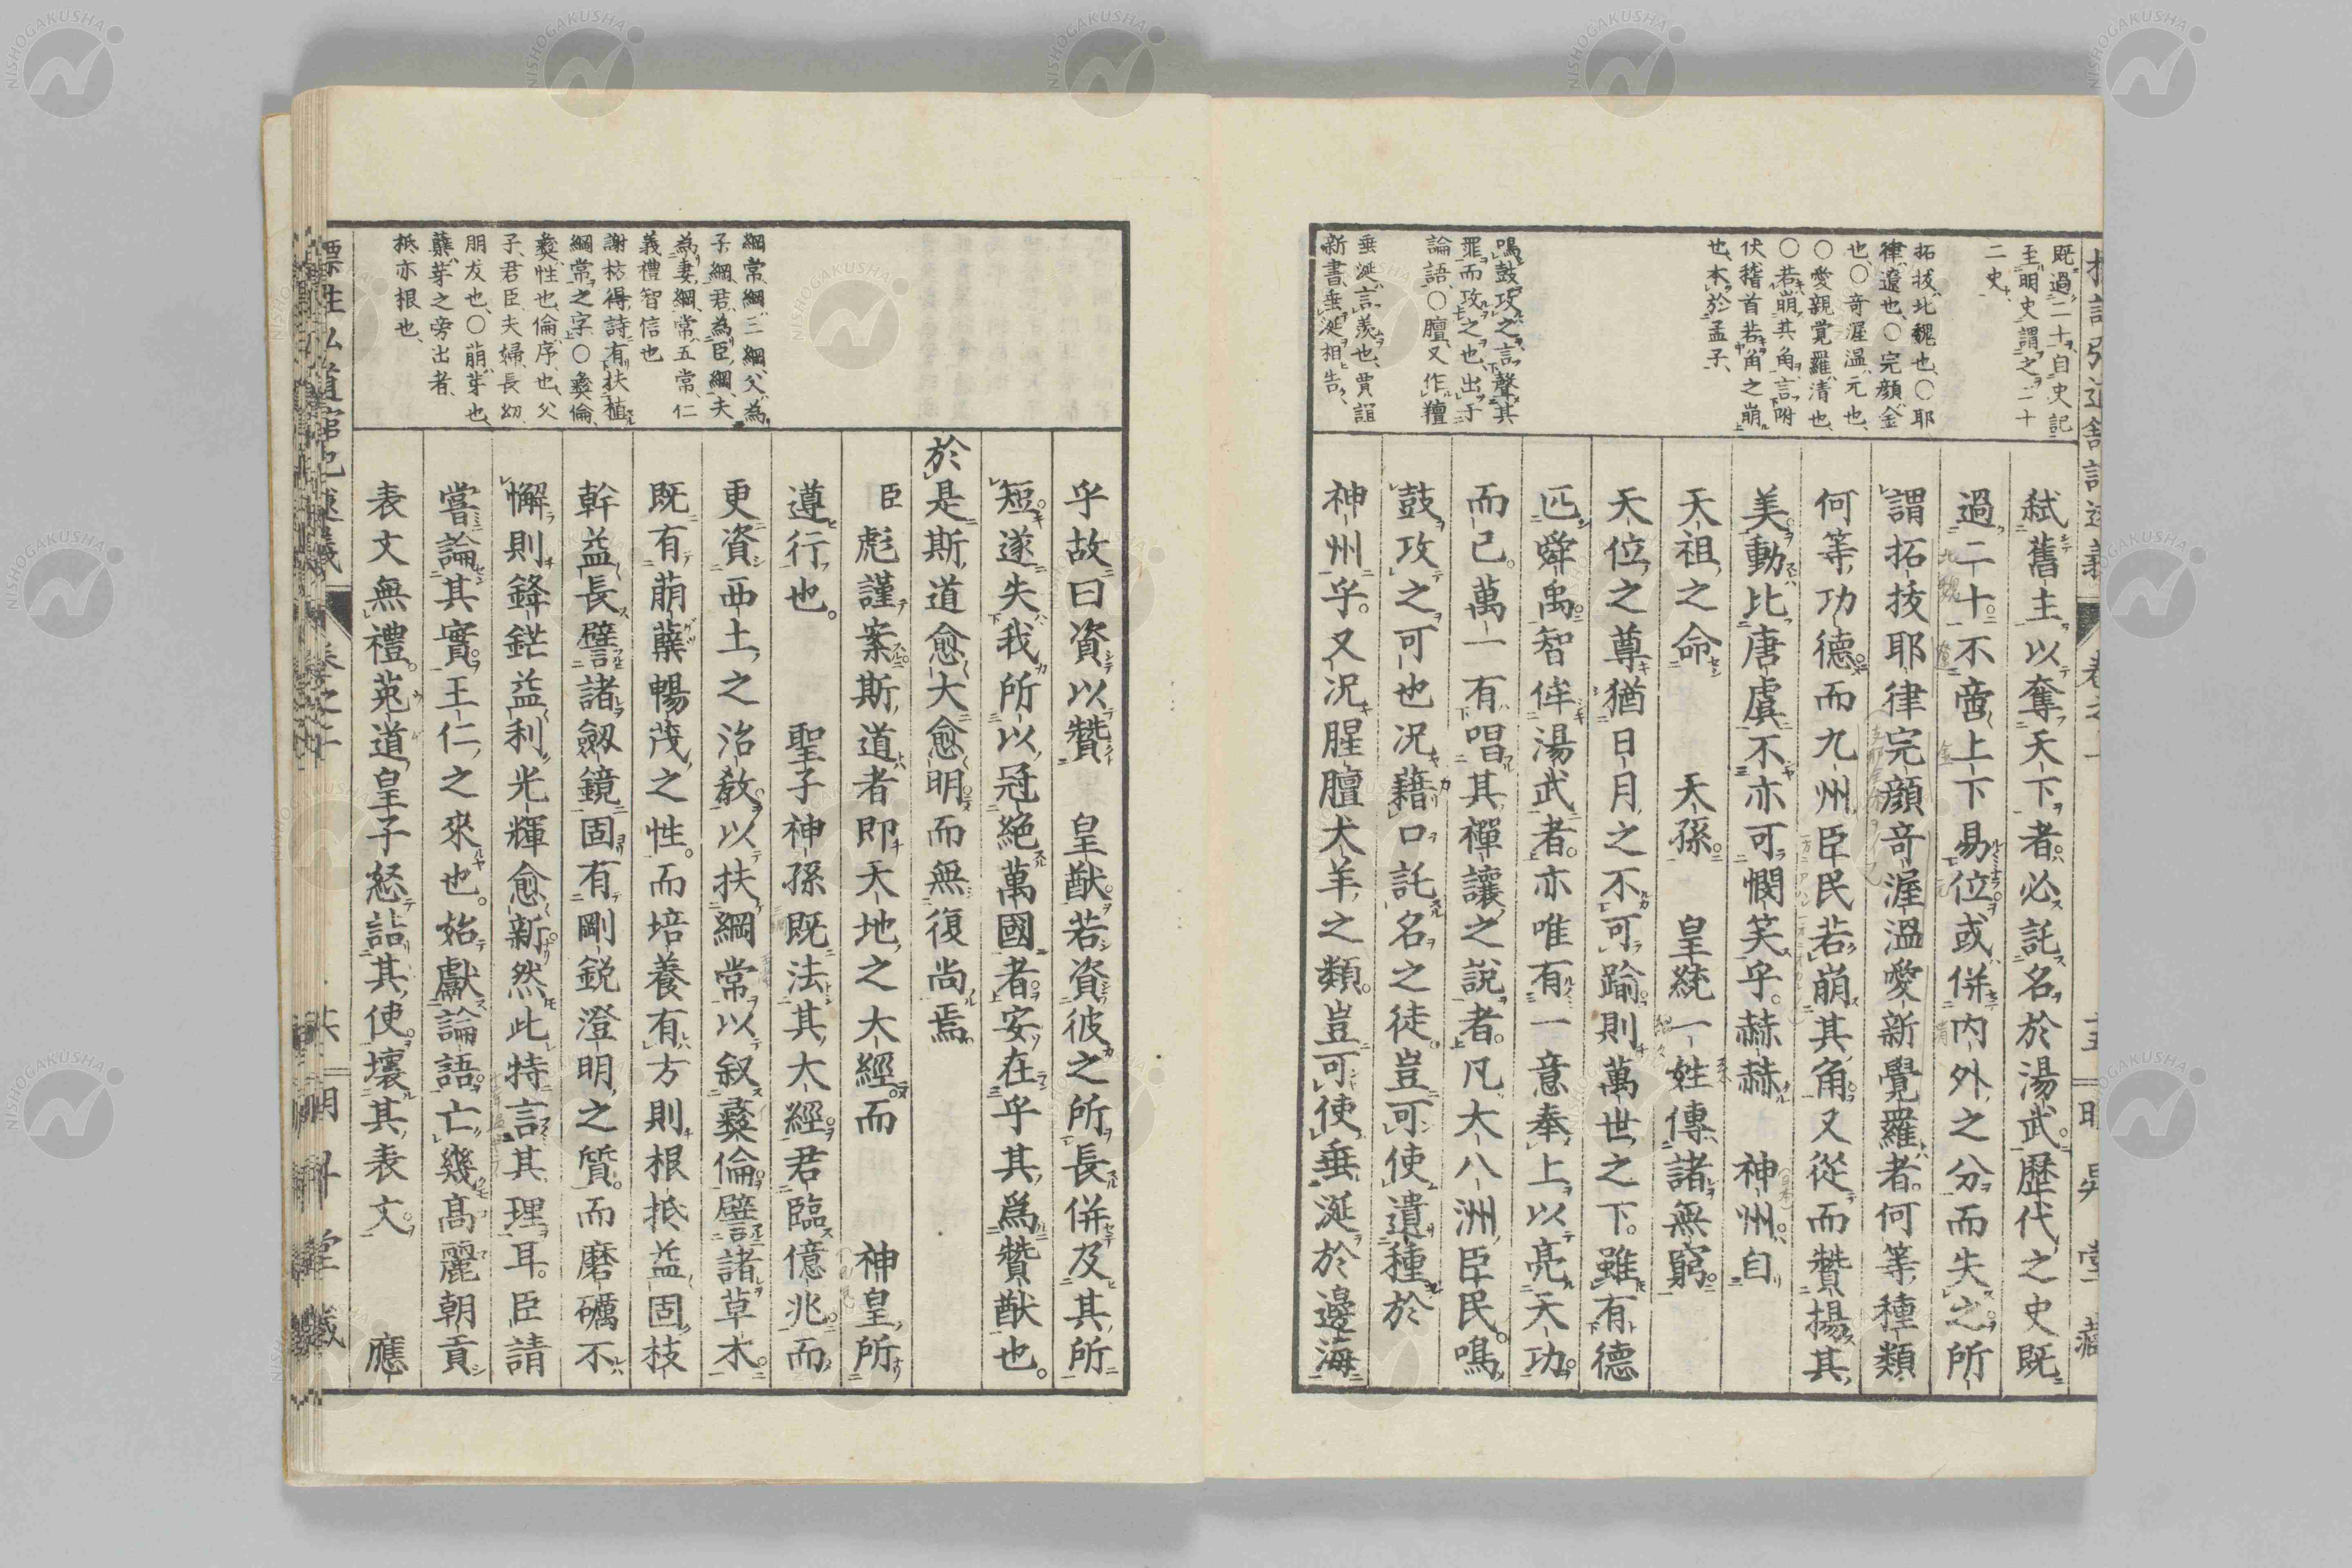 既過二十、自史記
至明史、謂之二十
二史、
拓拔、北魏也、〇耶
律、遼也、〇完顔、金
也、〇奇渥温、元也、
〇愛親覚羅、清也、
〇若崩其角、言咐
伏稽首若角之崩
也、本於孟子、
鳴鼓攻之、言聲其
罪而攻之也、出于
論語、〇膻、又作羶
垂涎、言羨也、賈誼
新書、垂涎相告、
弑舊主以奪天下者。必託名於湯武。歴代之史既
過二十。不啻上下易位。或併内外之分而失之。所
謂拓拔耶律完顔奇渥溫愛新覺羅者。何等種類
何等功德。而九州臣民。若崩其角。又從而贊揚其
美。動比唐虞。不亦可憫笑乎。赫赫 神州。自
天祖之命 天孫。 皇統一姓傳諸無窮。
天位之尊猶日月之不可踰。則萬世之下。雖有德
匹舜禹。智侔湯武者。亦唯有一意奉上以亮天功。
而已。萬一有唱其禪讓之說者。凡大八洲臣民。鳴
鼓攻之可也。况藉口託名之徒。豈可使遺種於
神州乎。又况腥膻犬羊之類。豈可使垂涎於邊海
乎。故曰資以贊 皇猷。若資彼之所長。併及其所
短。遂失我所以冠絶萬國者。安在乎其爲贊猷也。
於是斯道愈大愈明。而無復尚焉
臣彪謹案。斯道者即天地之大經。而 神皇所
遵行也。 聖子神孫既法其大經。君臨億兆。而
更資西土之治敎。以扶綱常。以叙彛倫。譬諸草木。
既有萠蘖暢茂之性。而培養有方。則根柢益固。枝
幹益長。譬諸劔鏡。固有剛鋭澄明之質。而磨礪不
懈。則鋒鋩益利。光輝愈新。然此特言其理耳。臣請
嘗論其實。王仁之來也。始獻論語。亡幾高麗朝貢
表文無禮。莵道皇子怒詰其使。壊其表文。 應
綱常、綱、三綱、父爲
子綱、君爲臣綱、夫
爲妻綱、常、五常、仁
義禮智信也
謝枋得詩、有扶植
綱常之字、〇彛倫、
彛、性也、倫、序也、父
子、君臣、夫婦、長幼
朋友也、〇萠、芽也、
蘖、芽之旁出者、
柢亦根也、